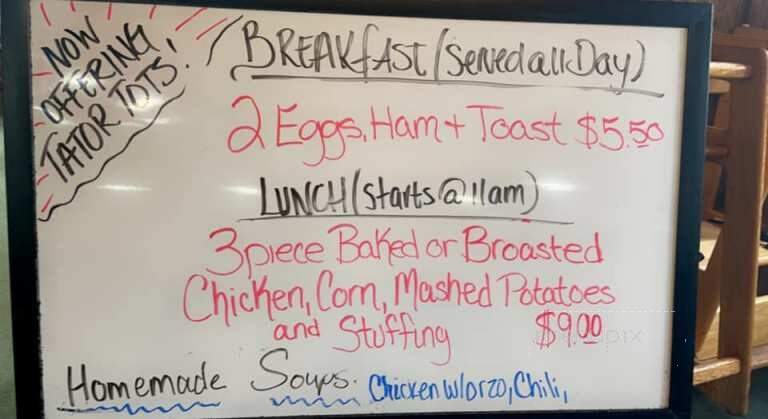 NOW
OFFERING
TATOR TOTS!
BREAKFAST (Served all Day)
2 Eggs, Ham + Toast $5.50
LUNCH (starts @ 11am)
3 piece Baked or Broasted
Chicken, Corn, Mashed Potatoes
and Stuffing $9.00
Homemade Soups. Chicken w/orzo, Chili,